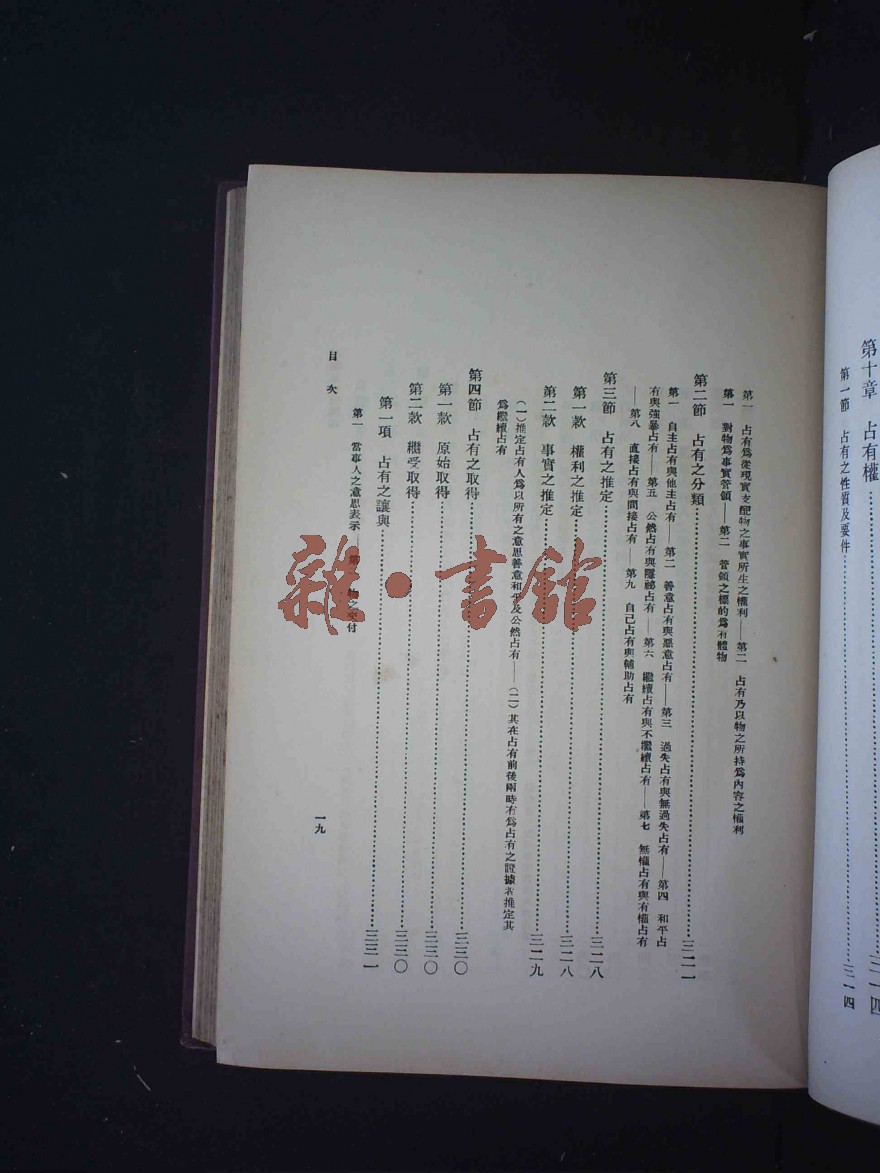 第十章　占有權……三一四
第一節　占有之性質及要件……三一四
第一　占有爲從現實支配物之事實所生之權利——第二　占有乃以物之所持爲內容之權利
第一　對物爲事實管領——第二　管領之標的爲有體物
第二節　占有之分類……三二一
第一　自主占有與他主占有——第二　善意占有與惡意占有——第三　過失占有與無過失占有——第四　和平占
有與強暴占有——第五　公然占有與隱祕占有——第六　繼續占有與不繼續占有——第七　無權占有與有權占有
——第八　直接占有與間接占有——第九　自己占有與輔助占有
第三節　占有之推定……三二八
第一款　權利之推定……三二八
第二款　事實之推定……三二九
（一）推定占有人爲以所有之意思善意和平及公然占有——（二）其在占有前後兩時有爲占有之證據者推定其
爲繼續占有
第四節　占有之取得……三三〇
第一款　原始取得……三三〇
第二款　繼受取得……三三〇
第一項　占有之讓與……三三一
第一　當事人之意思表示——第　物之交付
目次
一九
雜·書館